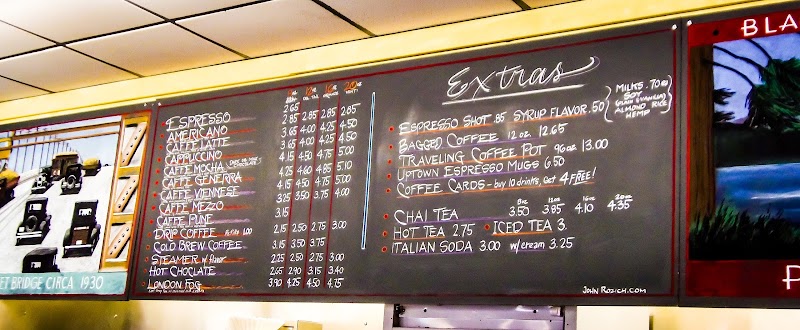 8oz 12oz 16oz 20oz
ESPRESSO 2.65
AMERICANO 2.85 2.85 2.85 2.85
CAFFE LATTE 3.65 4.00 4.25 4.50
CAPPUCCINO 3.65 4.00 4.25 4.50
CAFFE MOCHA 4.15 4.50 4.75 5.00
CAFFE GENERRA 4.25 4.60 4.85 5.10
CAFFE VIENNESE 4.15 4.50 4.75 5.00
CAFFE MEZZO 3.25 3.50 3.75 4.00
CAFFE PUNE 3.15
DRIP COFFEE 2.15 2.50 2.75 3.00
COLD BREW COFFEE 3.15 3.50 3.75
STEAMER w/ flavor 2.25 2.50 2.75 3.00
HOT CHOCLATE 2.65 2.90 3.15 3.40
LONDON FOG 3.90 4.25 4.50 4.75
Extras
ESPRESSO SHOT .85 SYRUP FLAVOR .50
MILKS .70
SOY
ALMOND RICE
HEMP
BAGGED COFFEE 12 oz. 12.65
TRAVELING COFFEE POT 96oz 13.00
UPTOWN ESPRESSO MUGS 6.50
COFFEE CARDS - buy 10 drinks, get 4 FREE!
8oz 12oz 16oz 20oz
CHAI TEA 3.50 3.85 4.10 4.35
HOT TEA 2.75 ICED TEA 3.
ITALIAN SODA 3.00 w/cream 3.25
JOHN ROZICH.COM
ET BRIDGE CIRCA 1930
BLA